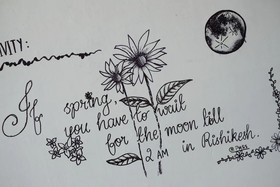 VITY:
If spring,
you have to wait
for the moon till
2 AM in Rishikesh.